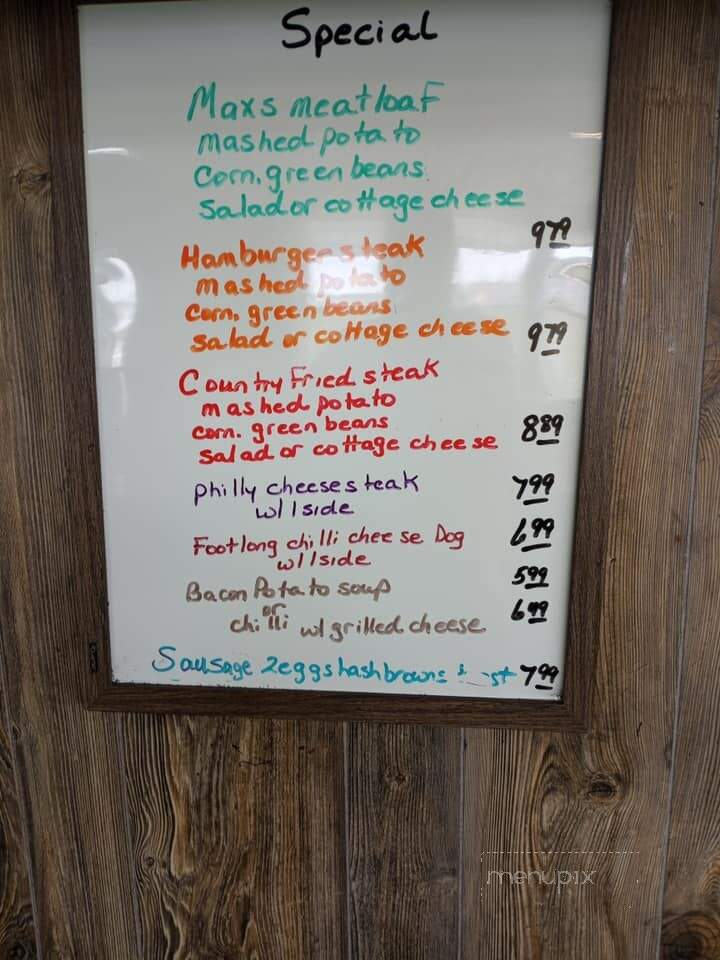 Special
Maxs meatloaf
mashed potato
Corn, green beans
Salad or cottage cheese
9 79
Hamburger steak
mashed potato
Corn, green beans
Salad or cottage cheese 9 79
Country Fried steak
mashed potato
corn. green beans 8 89
salad or cottage cheese
philly cheese steak 7 99
w/ 1 side
Footlong chilli cheese Dog 6 99
w/ 1 side
Bacon Potato soup 5 99
or
chilli w/ grilled cheese 6 99
Sausage 2 eggs hashbrowns & 7 99
menupix